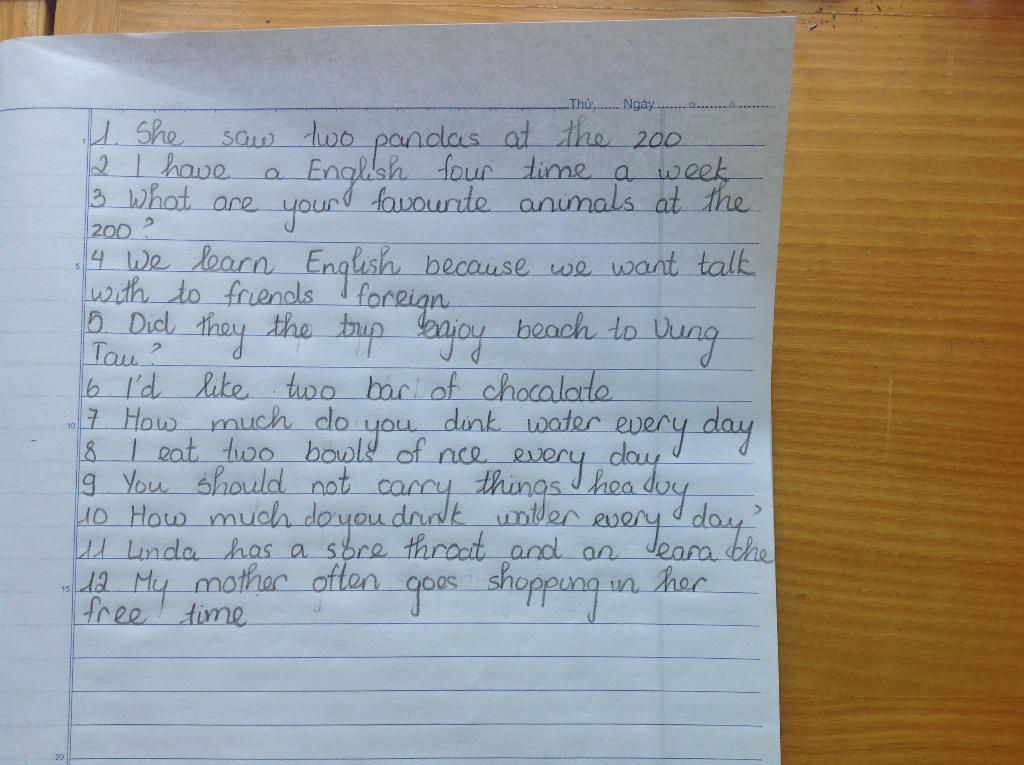 Thứ,...... Ngày.......o.......o........
1. She saw two pandas at the zoo
2 I have a English four time a week
3 What are your favourite animals at the
zoo?
5
4 We learn English because we want talk
with to friends foreign
5 Did they the trip enjoy beach to Vung
Tau?
6 I'd like two bar of chocalate
10
7 How much do you dink water every day
8 I eat two bowls of rice every day
9 You should not carry things heavy
10 How much do you drink water every day?
11 Linda has a sore throat and an earache
15
12 My mother often goes shopping in her
free time
20